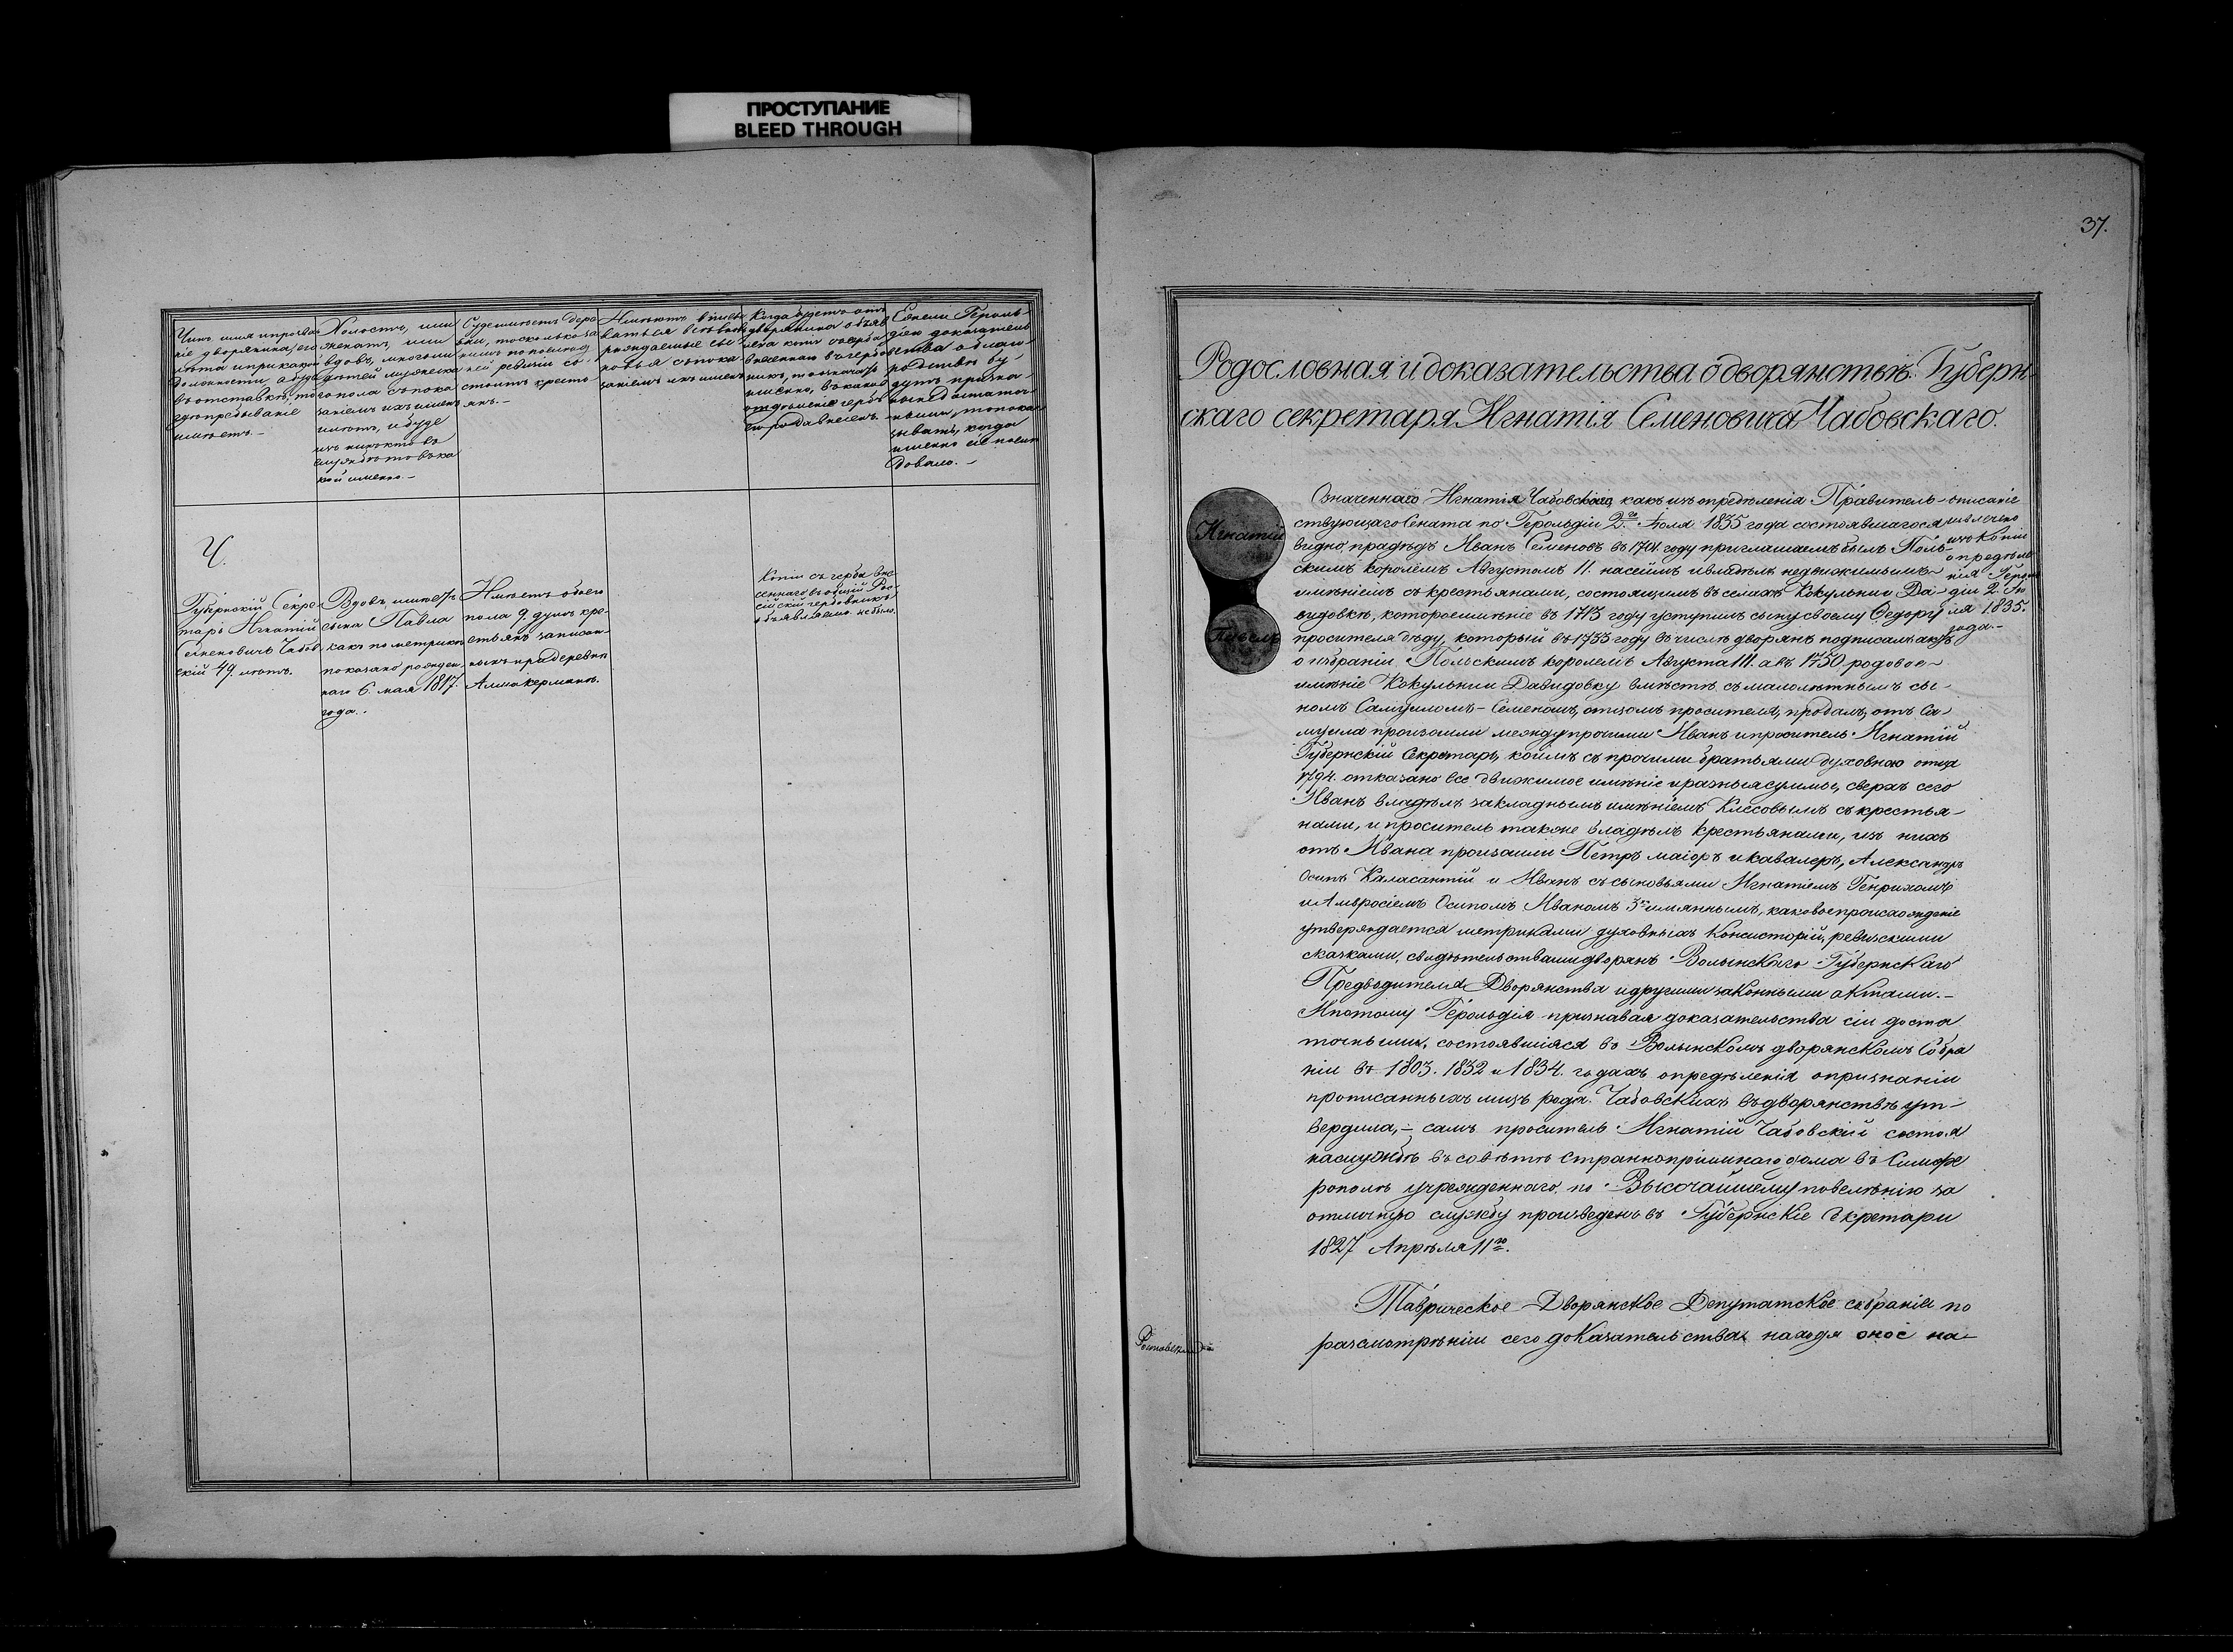 ПРОСТУПАНИЕ
BLEED THROUGH
37.
Чинъ имя и прозва-
ніе дворянина, его
лѣта и при какой
должности, а буде
въ отставкѣ, то
гдѣ пребываніе
имѣетъ.-
Холостъ, или
женатъ, или
вдовъ, многоли
дѣтей мужеска
го пола съ пока
заніемъ ихъ имянъ
имѣетъ, и буде
изъ нихъ кто въ
службѣ то въ ка
кой именно.-
Буде имѣетъ дере
вни, то сколько за
нимъ по послѣд
ней ревизіи со-
стоитъ кресто-
янъ.-
Имѣютъ
ваться всѣ
рождаемые сы
новья съ пока
заніемъ ихъ именъ
Когда будетъ отъ
дворянина объяв
лена копія съ герба
внесеннаго въ гербов
никъ, то означать
именно, въ какое
отдѣленіе гербъ
его рода внесенъ.
Если Героль-
діею доказатель
ства о благо-
родствѣ бу-
дутъ призна-
ны недостаточ-
ными, то пока-
зывать, когда
именно сіе послѣ
довало.-
Ч.
Губернскій Секре-
тарь Игнатій
Семеновичъ Чабов
скій 49. лѣтъ.
Вдовъ, имѣетъ
сына Павла
какъ по метрикѣ
показано рожден-
наго 6. мая 1817.
года.
Имѣетъ обоего
пола 9. душъ кре-
стьянъ записан-
ныхъ при деревнѣ
Алмакерманъ.
Копіи съ герба вне
сеннаго въ общій Рос
сійскій гербовникъ
объявляемо не было.
Родословная и доказательства о дворянствѣ. Губерн-
скаго секретаря Игнатія Семеновича Чабовскаго.
Игнатій
Павелъ
Означеннаго Игнатія Чабовскаго, какъ изъ опредѣленія Правитель-
ствующаго Сената по Герольдіи 2го Іюля 1835 года состоявшагося
видно, прадѣдъ Иванъ Семеновъ въ 1704 году приглашаемъ былъ Поль-
скимъ королемъ Августомъ II. на сеймъ и владѣлъ недвижимымъ
имѣніемъ съ крестьянами, состоящимъ въ селахъ Кокульнѣ Да-
видовкѣ, которое имѣніе въ 1713 году уступилъ сыну своему Ѳедору
просителя дѣду, который въ 1733 году въ числѣ дворянъ подписалъ актъ
о избраніи Польскимъ королемъ Августа III. а въ 1750 родовое
имѣніе Кокульнии Давидовку вмѣстѣ съ малолѣтнымъ сы-
номъ Самуиломъ-Семеномъ, отцомъ просителя, продалъ, отъ Са-
муила произошли между прочими Иванъ и проситель Игнатій
Губернскій Секретарь, коимъ съ прочими братьями духовною отца
1794. отказано все движимое имѣніе и разныя суммы, сверхъ сего
Иванъ владѣлъ закладнымъ имѣніемъ Клесовымъ съ крестья-
нами, и проситель также владѣлъ крестьянами, изъ нихъ
отъ Ивана произошли Петръ маіоръ и кавалеръ, Александръ
Осипъ Каласантій и Иванъ съ сыновьями Игнатіемъ Генрихомъ
и Амвросіемъ Осипомъ Иваномъ 3хъ имяннымъ, каковое происхожденіе
утверждается метриками духовныхъ Консисторій, ревизскими
сказками, свидѣтельствами дворянъ Волынскаго Губернскаго
Предводителя Дворянства и другими законными актами.-
И потому Герольдія признавая доказательства сіи доста
точными, состоявшіяся въ Волынскомъ дворянскомъ Собра
ніи въ 1803. 1832 и 1834. годахъ опредѣленія о признаніи
прописанныхъ лицъ рода Чабовскихъ въ дворянствѣ ут-
вердила,- самъ проситель Игнатій Чабовскій состоя
на службѣ въ совѣтѣ Страннопріимнаго дома въ Симфе
рополѣ учрежденнаго, по Высочайшему повелѣнію за
отличную службу произведенъ въ Губернскіе Секретари
1827 Апрѣля 11го.
описаніе
извлечено
изъ Копіи
опредѣле
нія Героль
діи 2. Iю
ля 1835.
года.-
Таврическое Дворянское Депутатское собраніе по
разсмотрѣніи сего доказательства, находя оное на-